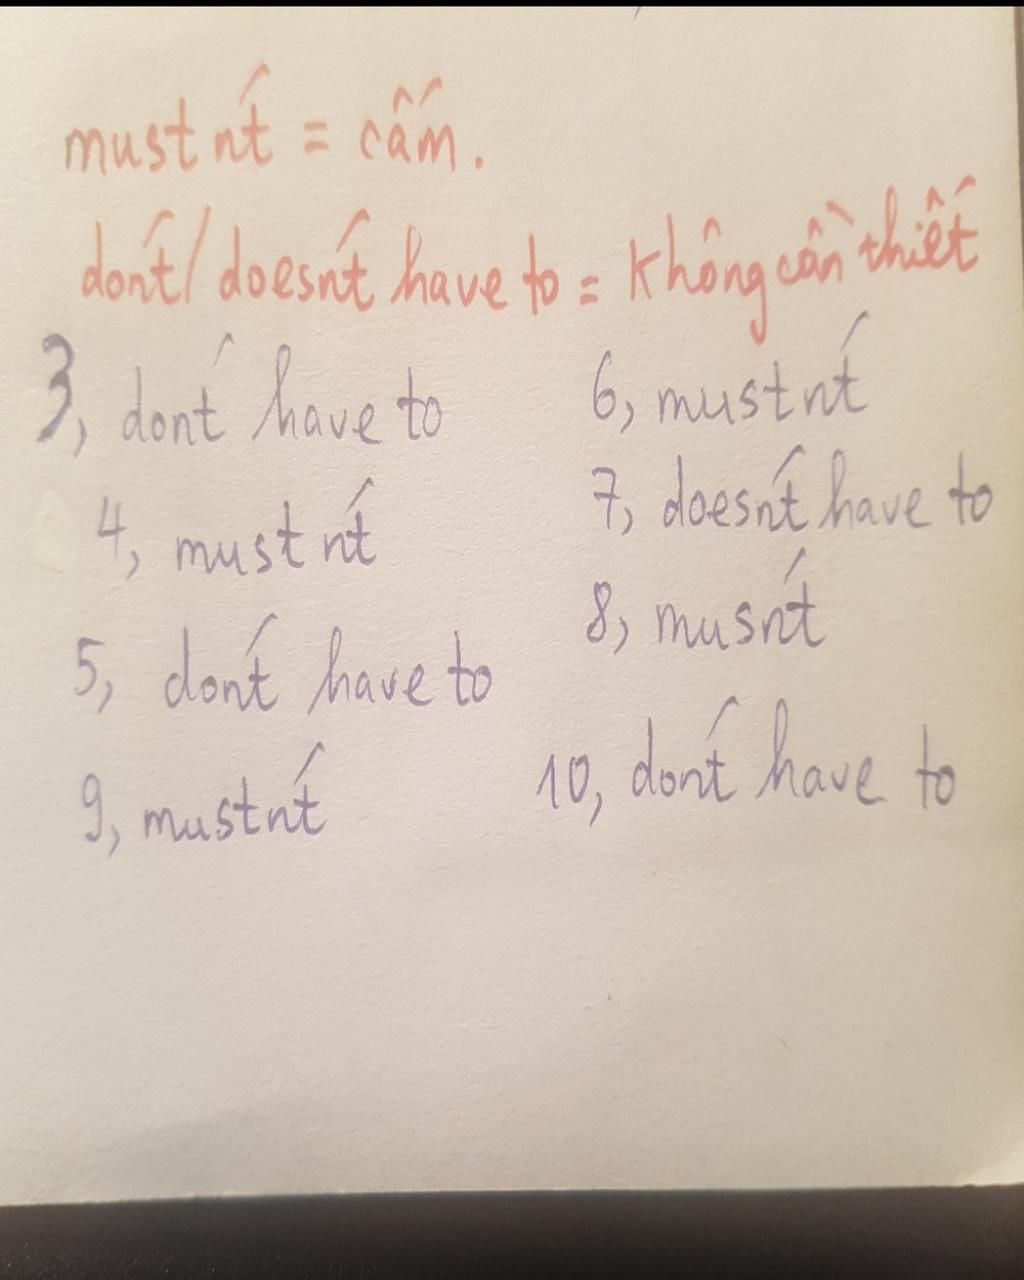 mustn't = cấm.
don't/doesn't have to = không cần thiết
3, don't have to
6, mustn't
4, mustn't
7, doesn't have to
5, don't have to
8, musn't
9, mustn't
10, don't have to